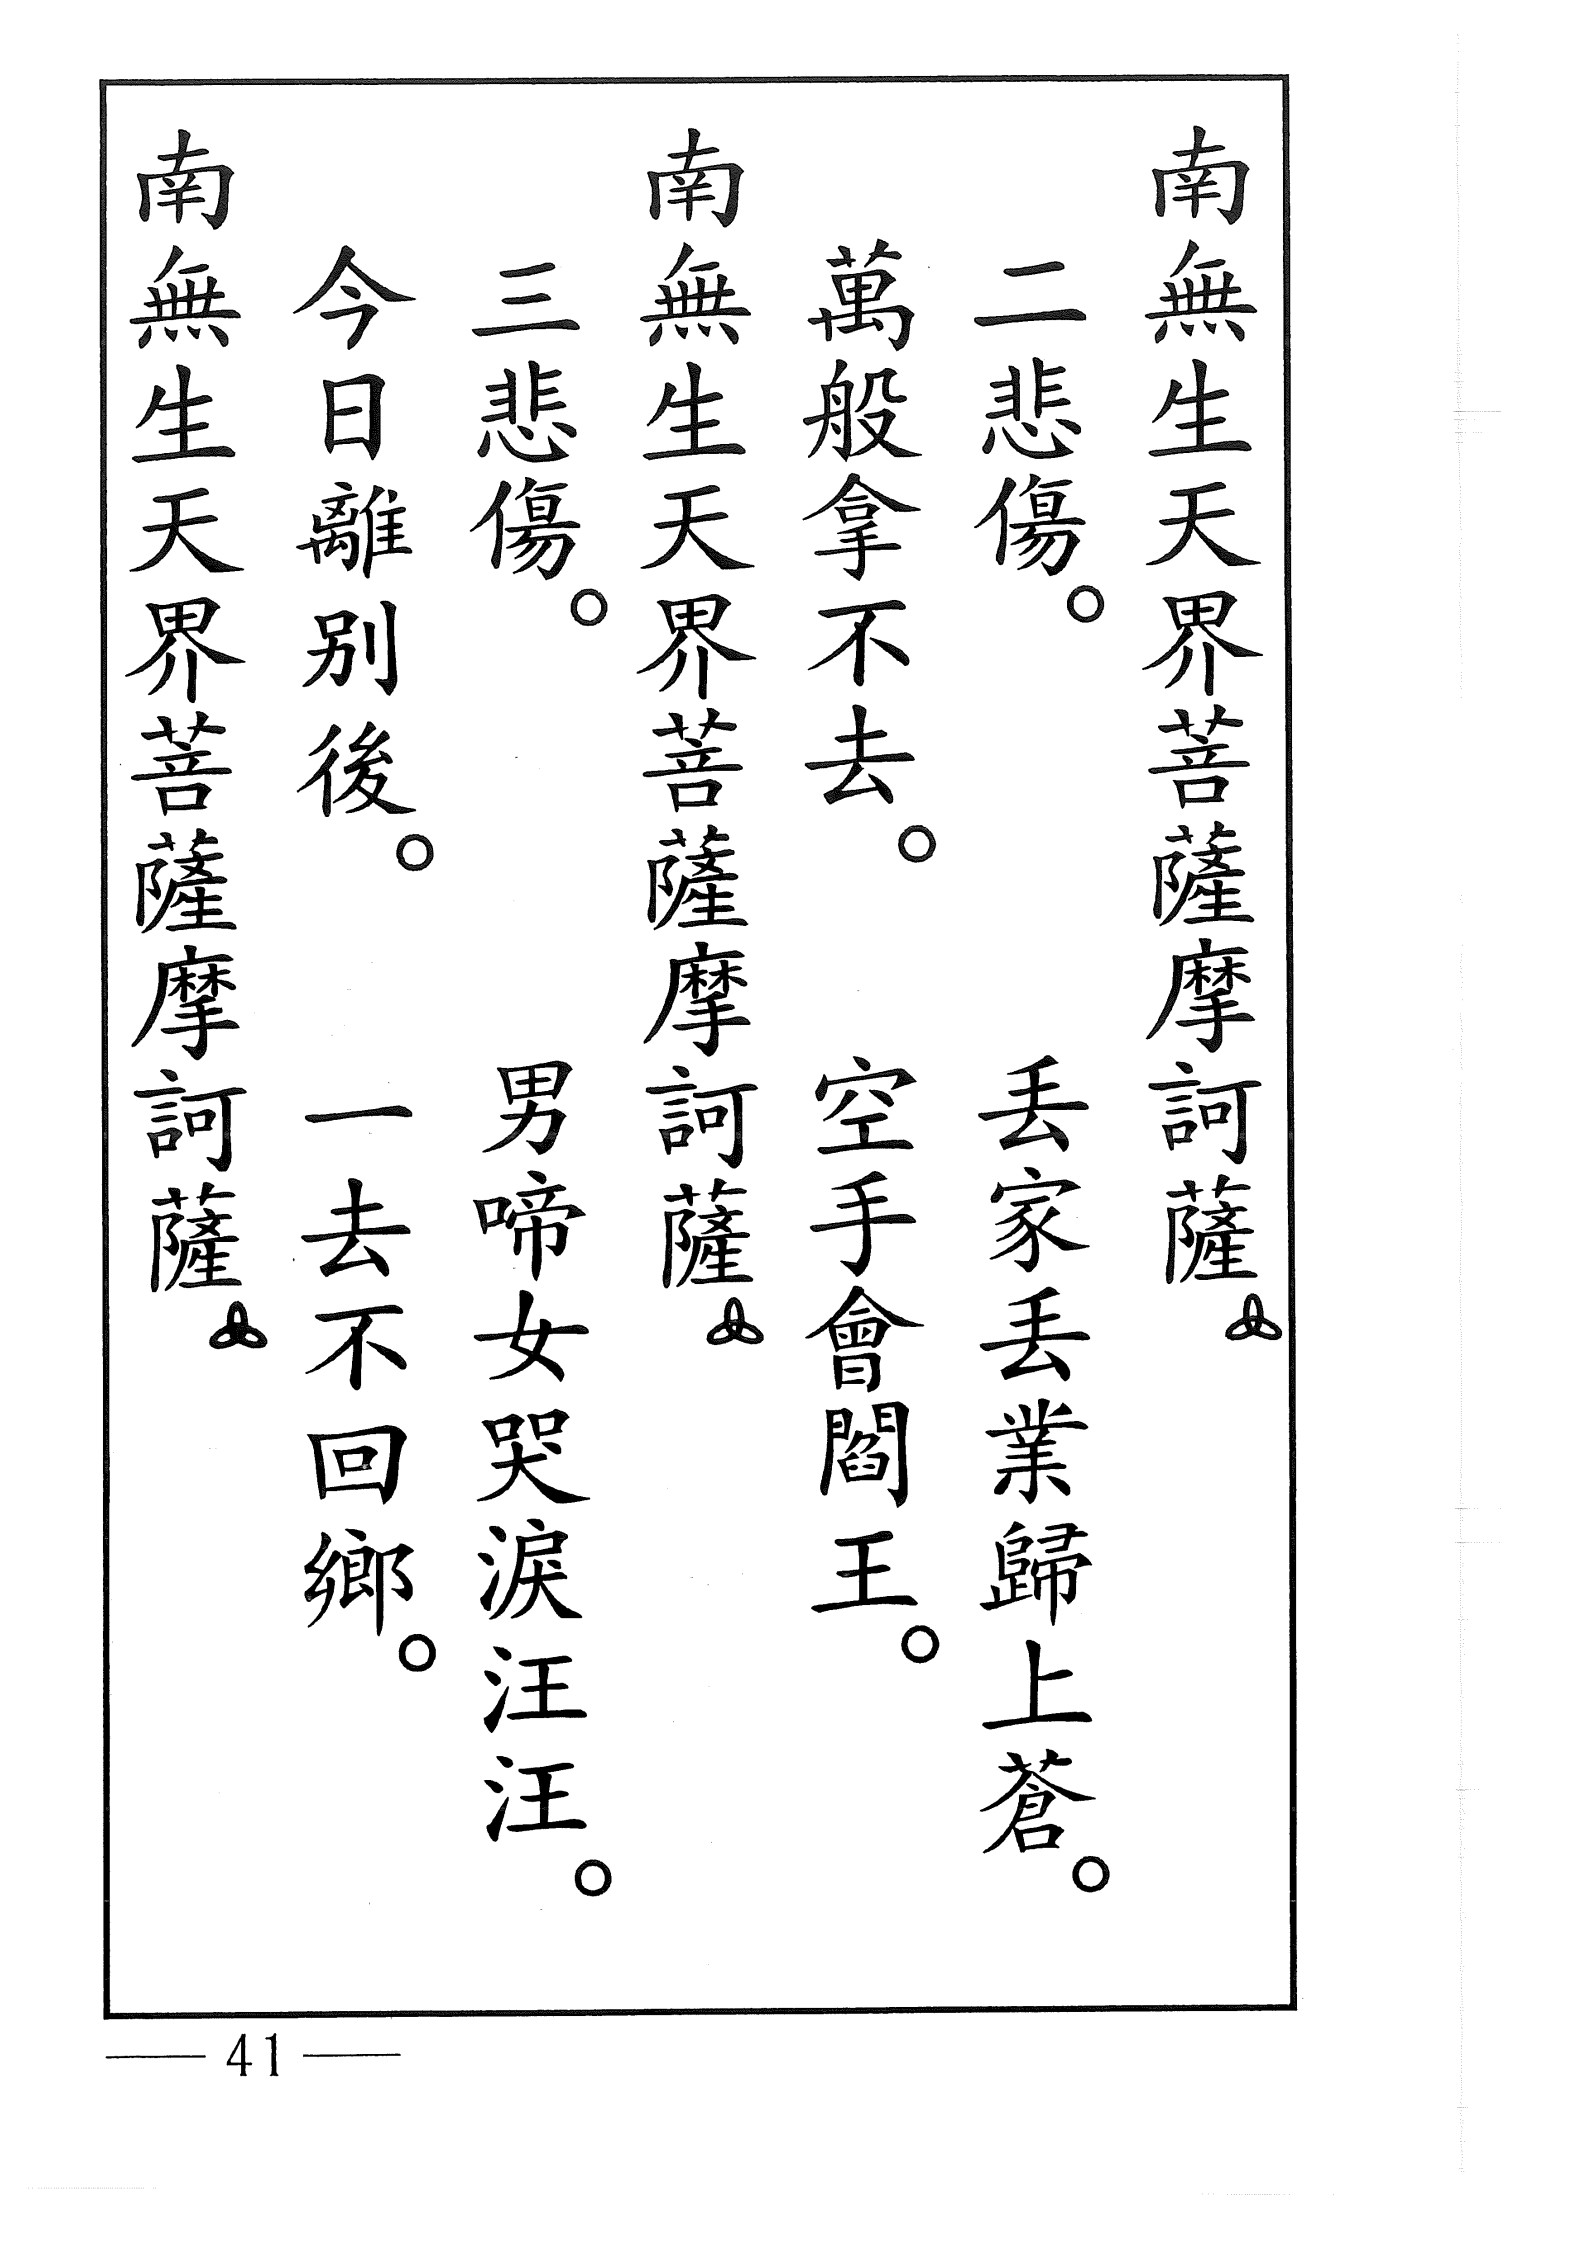 南無生天界菩薩摩訶薩
二悲傷。 丟家丟業歸上蒼。
萬般拿不去。 空手會閻王。
南無生天界菩薩摩訶薩
三悲傷。 男啼女哭淚汪汪。
今日離別後。 一去不回鄉。
南無生天界菩薩摩訶薩
41